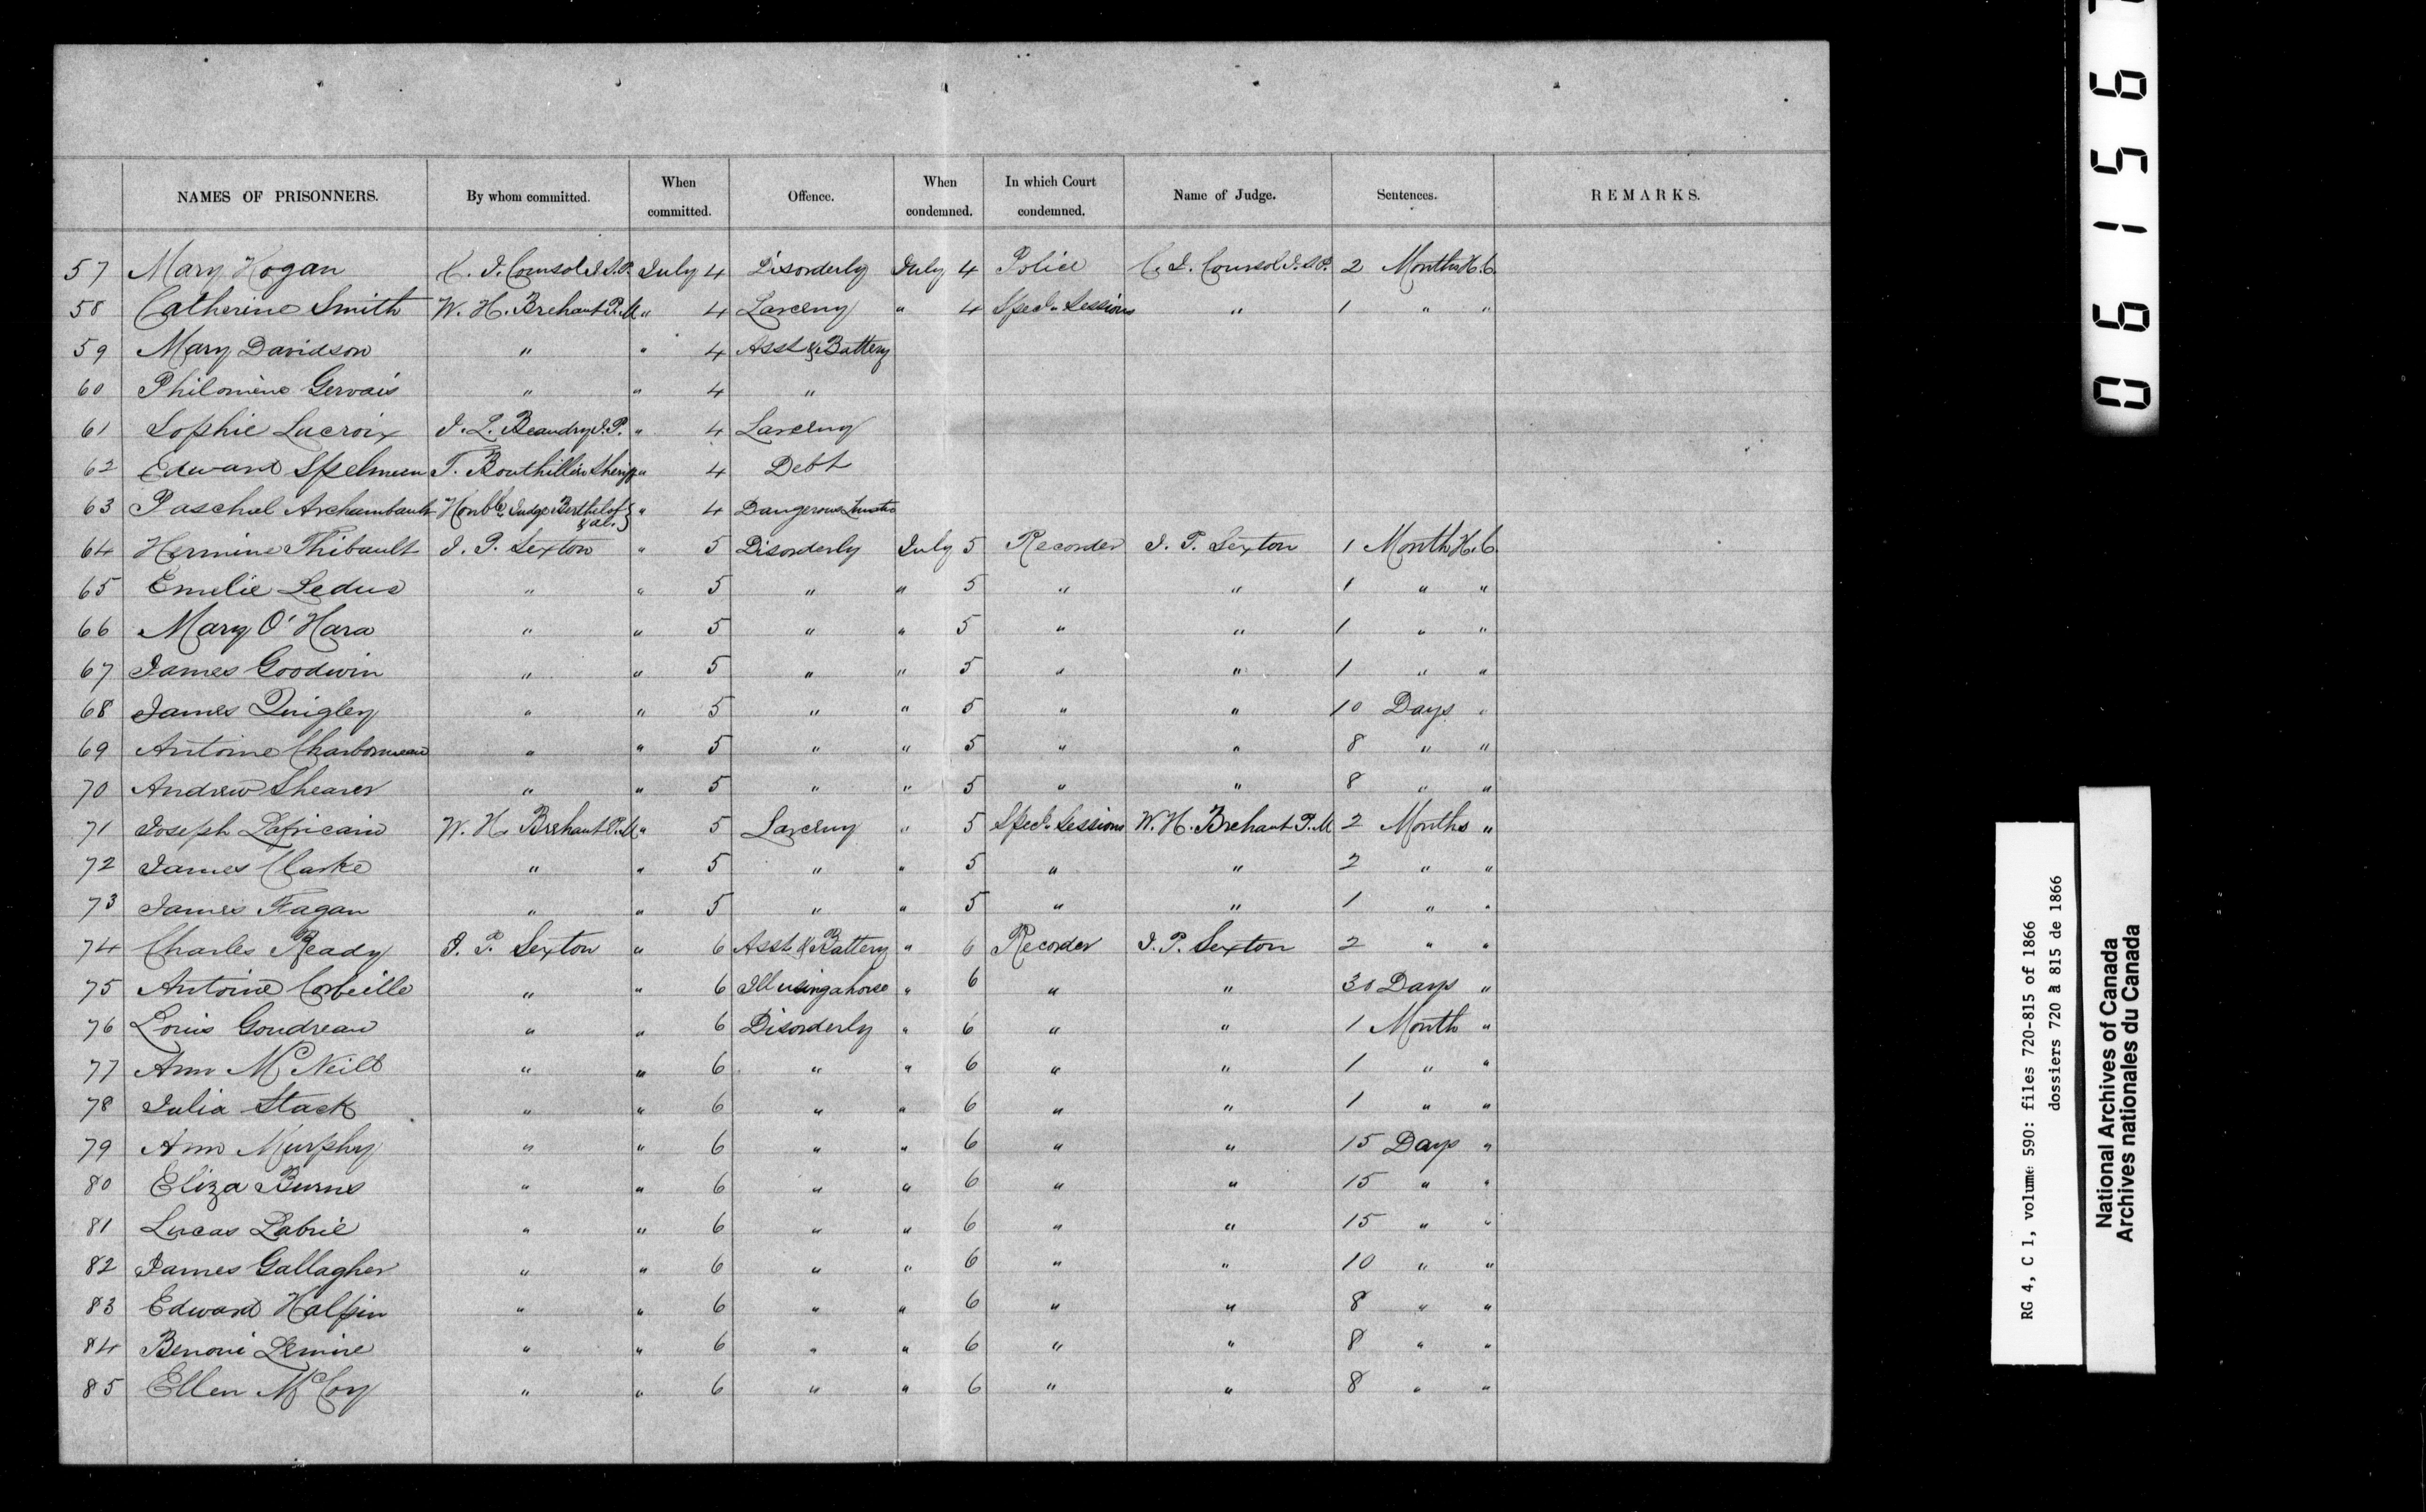 NAMES OF PRISONNERS. By whom committed. When committed. Offence. When condemned. In which Court condemned. Name of Judge. Sentences. REMARKS.
57 Mary Hogan C. J. Coursol J.S.P. July 4 Disorderly July 4 Police C. J. Coursol J.S.P. 2 Months H.C.
58 Catherine Smith W. H. Brehaut P.M " 4 Larceny " 4 Specl. Sessions " 1 " "
59 Mary Davidson " " 4 Asslt & Battery
60 Philomène Gervais " " 4 "
61 Sophie Lacroix J. L. Beaudry J.P. " 4 Larceny
62 Edward Spelmeen T. Bouthillier Sheriff " 4 Debt
63 Paschal Archambault Honble. Judge Berthelot & al. } " 4 Dangerous Lunatic
64 Hermine Thibault J. P. Sexton " 5 Disorderly July 5 Recorder J. P. Sexton 1 Month H.C.
65 Emelie Leduc " " 5 " " 5 " " 1 " "
66 Mary O'Hara " " 5 " " 5 " " 1 " "
67 James Goodwin " " 5 " " 5 " " 1 " "
68 James Quigley " " 5 " " 5 " " 10 Days "
69 Antoine Charbonneau " " 5 " " 5 " " 8 " "
70 Andrew Shearer " " 5 " " 5 " " 8 " "
71 Joseph Lafricain W. H. Brehaut P.M " 5 Larceny " 5 Specl. Sessions W. H. Brehaut P.M 2 Months "
72 James Clarke " " 5 " " 5 " " 2 " "
73 James Fagan " " 5 " " 5 " " 1 " "
74 Charles Ready J. P. Sexton " 6 Asslt & Battery " 6 Recorder J. P. Sexton 2 " "
75 Antoine Corbeille " " 6 Ill using a horse " 6 " " 30 Days "
76 Louis Goudreau " " 6 Disorderly " 6 " " 1 Month "
77 Ann McNeill " " 6 " " 6 " " 1 " "
78 Julia Stack " " 6 " " 6 " " 1 " "
79 Ann Murphy " " 6 " " 6 " " 15 Days "
80 Eliza Burns " " 6 " " 6 " " 15 " "
81 Lucas Labrie " " 6 " " 6 " " 15 " "
82 James Gallagher " " 6 " " 6 " " 10 " "
83 Edward Halpin " " 6 " " 6 " " 8 " "
84 Benoni Lemire " " 6 " " 6 " " 8 " "
85 Ellen McCoy " " 6 " " 6 " " 8 " "
061567
RG 4, C 1, volume 590: files 720-815 of 1866
dossiers 720 à 815 de 1866
National Archives of Canada
Archives nationales du Canada